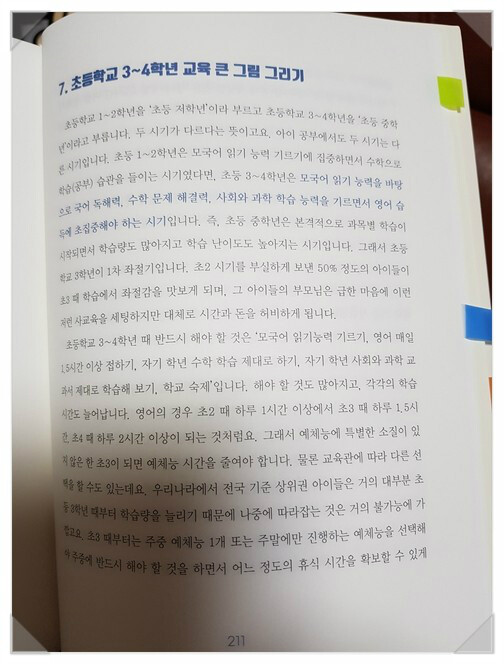 7. 초등학교 3~4학년 교육 큰 그림 그리기
초등학교 1~2학년을 '초등 저학년'이라 부르고 초등학교 3~4학년을 '초등 중학
년'이라고 부릅니다. 두 시기가 다르다는 뜻이고요. 아이 공부에서도 두 시기는 다
른 시기입니다. 초등 1~2학년은 모국어 읽기 능력 기르기에 집중하면서 수학으로
학습(공부) 습관을 들이는 시기였다면, 초등 3~4학년은 모국어 읽기 능력을 바탕
으로 국어 독해력, 수학 문제 해결력, 사회와 과학 학습 능력을 기르면서 영어 습
득에 초집중해야 하는 시기입니다. 즉, 초등 중학년은 본격적으로 과목별 학습이
시작되면서 학습량도 많아지고 학습 난이도도 높아지는 시기입니다. 그래서 초등
학교 3학년이 1차 좌절기입니다. 초2 시기를 부실하게 보낸 50% 정도의 아이들이
초3 때 학습에서 좌절감을 맛보게 되며, 그 아이들의 부모님은 급한 마음에 이런
저런 사교육을 세팅하지만 대체로 시간과 돈을 허비하게 됩니다.
초등학교 3~4학년 때 반드시 해야 할 것은 '모국어 읽기능력 기르기, 영어 매일
1.5시간 이상 접하기, 자기 학년 수학 학습 제대로 하기, 자기 학년 사회와 과학 교
과서 제대로 학습해 보기, 학교 숙제'입니다. 해야 할 것도 많아지고, 각각의 학습
시간도 늘어납니다. 영어의 경우 초2 때 하루 1시간 이상에서 초3 때 하루 1.5시
간, 초4 때 하루 2시간 이상이 되는 것처럼요. 그래서 예체능에 특별한 소질이 있
지 않은 한 초3이 되면 예체능 시간을 줄여야 합니다. 물론 교육관에 따라 다른 선
택을 할 수도 있는데요. 우리나라에서 전국 기준 상위권 아이들은 거의 대부분 초
등 3학년 때부터 학습량을 늘리기 때문에 나중에 따라잡는 것은 거의 불가능에 가
깝고요. 초3 때부터는 주중 예체능 1개 또는 주말에만 진행하는 예체능을 선택해
야 주중에 반드시 해야 할 것을 하면서 어느 정도의 휴식 시간을 확보할 수 있게
211